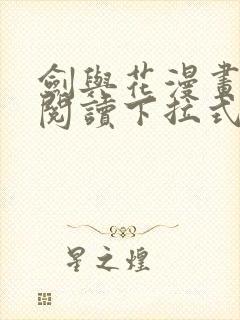 劍與花漫畫
閱讀下拉式
星之煌